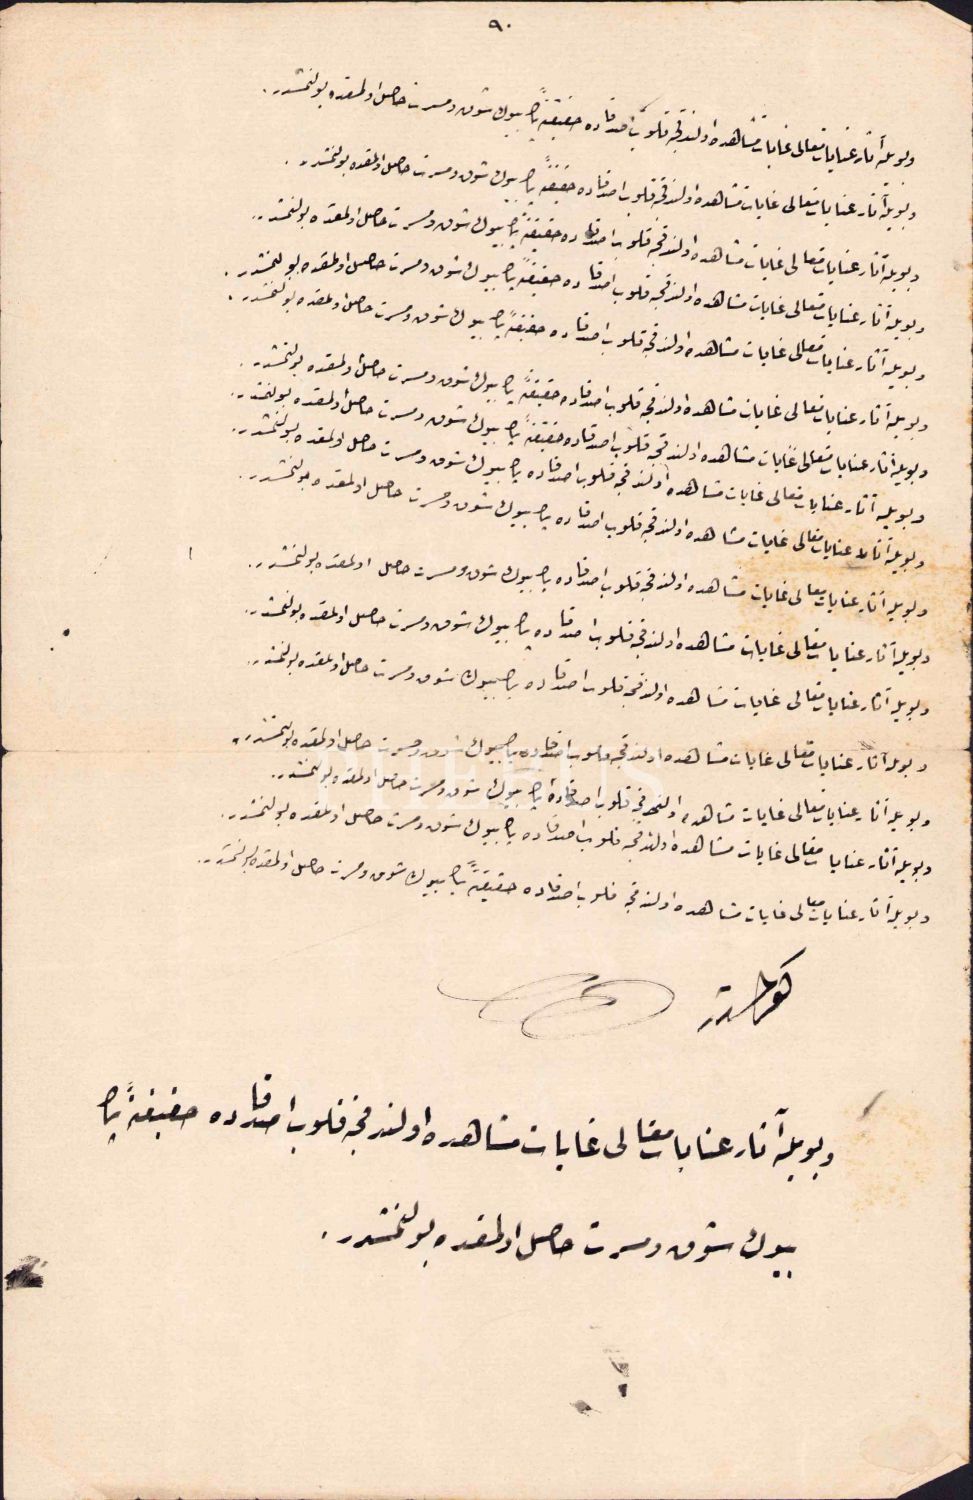 ٩٠
وبویله آثار عنایات متعالی غایات مشاهده اولندقجه قلوب اصدقاده حقیقةً پك بیوك شوق ومسرت حاصل اولمقده بولنمشدر.
وبویله آثار عنایات متعالی غایات مشاهده اولندقجه قلوب اصدقاده حقیقةً پك بیوك شوق ومسرت حاصل اولمقده بولنمشدر.
وبویله آثار عنایات متعالی غایات مشاهده اولندقجه قلوب اصدقاده حقیقةً پك بیوك شوق ومسرت حاصل اولمقده بولنمشدر.
وبویله آثار عنایات متعالی غایات مشاهده اولندقجه قلوب اصدقاده حقیقةً پك بیوك شوق ومسرت حاصل اولمقده بولنمشدر.
وبویله آثار عنایات متعالی غایات مشاهده اولندقجه قلوب اصدقاده حقیقةً پك بیوك شوق ومسرت حاصل اولمقده بولنمشدر.
وبویله آثار عنایات متعالی غایات مشاهده اولندقجه قلوب اصدقاده حقیقةً پك بیوك شوق ومسرت حاصل اولمقده بولنمشدر.
وبویله آثار عنایات متعالی غایات مشاهده اولندقجه قلوب اصدقاده حقیقةً پك بیوك شوق ومسرت حاصل اولمقده بولنمشدر.
وبویله آثار عنایات متعالی غایات مشاهده اولندقجه قلوب اصدقاده پك بیوك شوق ومسرت حاصل اولمقده بولنمشدر.
وبویله آثار عنایات متعالی غایات مشاهده اولندقجه قلوب اصدقاده پك بیوك شوق ومسرت حاصل اولمقده بولنمشدر.
وبویله آثار عنایات متعالی غایات مشاهده اولندقجه قلوب اصدقاده پك بیوك شوق ومسرت حاصل اولمقده بولنمشدر.
وبویله آثار عنایات متعالی غایات مشاهده اولندقجه قلوب اصدقاده پك بیوك شوق ومسرت حاصل اولمقده بولنمشدر.
وبویله آثار عنایات متعالی غایات مشاهده اولندقجه قلوب اصدقاده پك بیوك شوق ومسرت حاصل اولمقده بولنمشدر.
وبویله آثار عنایات متعالی غایات مشاهده اولندقجه قلوب اصدقاده پك بیوك شوق ومسرت حاصل اولمقده بولنمشدر.
وبویله آثار عنایات متعالی غایات مشاهده اولندقجه قلوب اصدقاده پك بیوك شوق ومسرت حاصل اولمقده بولنمشدر.
وبویله آثار عنایات متعالی غایات مشاهده اولندقجه قلوب اصدقاده پك بیوك شوق ومسرت حاصل اولمقده بولنمشدر.
وبویله آثار عنایات متعالی غایات مشاهده اولندقجه قلوب اصدقاده حقیقةً پك بیوك شوق ومسرت حاصل اولمقده بولنمشدر.
وبویله آثار عنایات متعالی غایات مشاهده اولندقجه قلوب اصدقاده حقیقةً پك
بیوك شوق ومسرت حاصل اولمقده بولنمشدر.